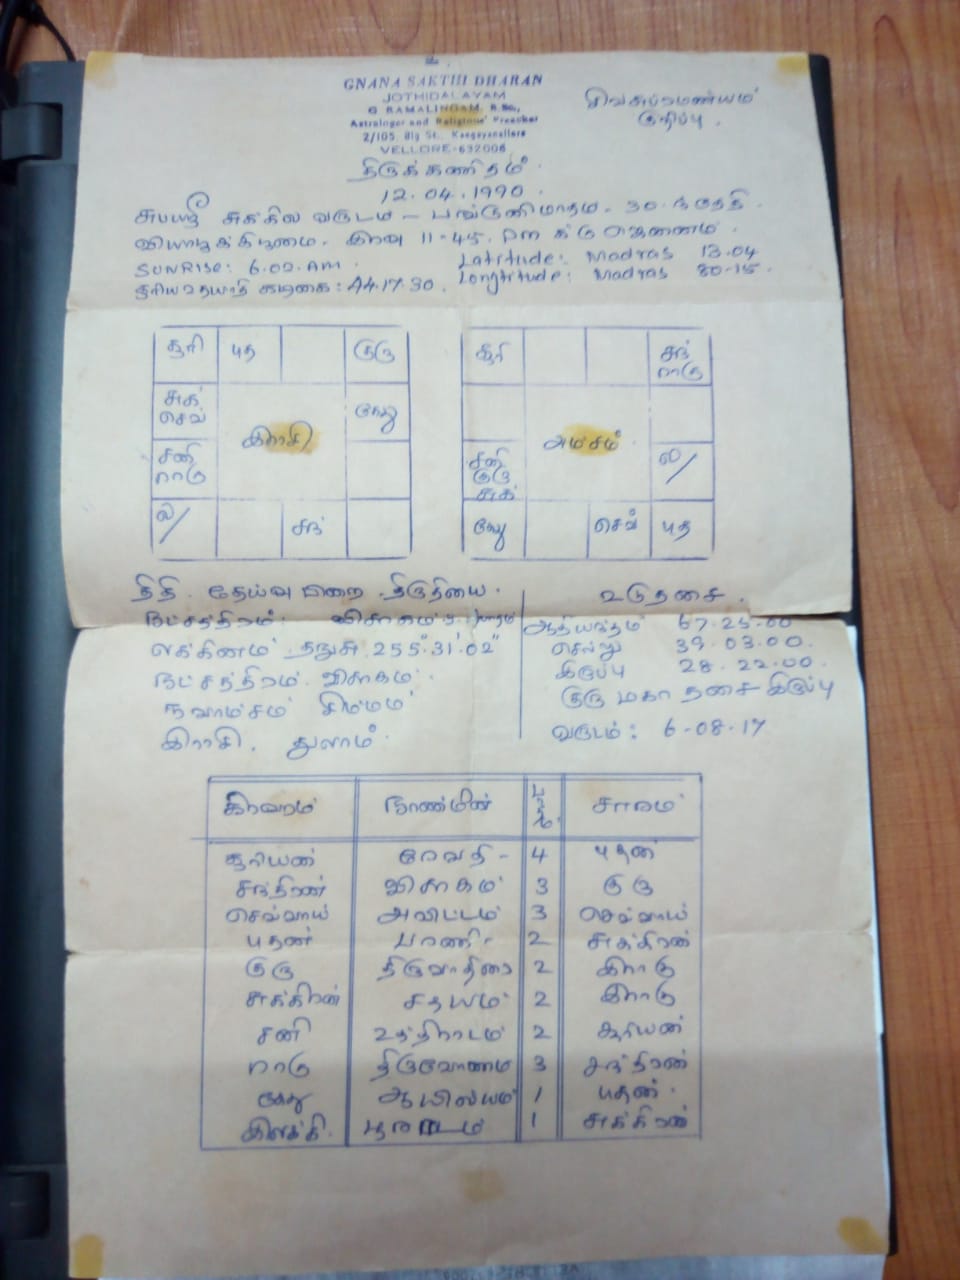 GNANA SAKTHI DHARAN
JOTHIDALAYAM
G RAMALINGAM, B.Sc.,
Astrologer and Religious Preacher
2/105, Big St., Kangeyanallore
VELLORE-632006
சிவசுப்ரமண்யம்
குறிப்பு.
திருக்கணிதம்.
12.04.1990.
சுபயஸ்ரீ சுக்கில வருடம் - பங்குனிமாதம். 30.ந்தேதி.
வியாழக்கிழமை. இரவு 11-45. Pm க்கு ஜெனனம்.
SUNRISE: 6.02. AM. Latitude: Madras 13.04
சூரியஉதயாதி கடிகை: 44.17.30. Longtitude: Madras 80-15.
சூரி புத குரு
சுக் செவ் கேது
இராசி
சனி ராகு
ல/ சந்
சூரி சந் ராகு
அம்சம்
சனி குரு சுக் ல/
கேது செவ் புத
திதி. தேய்வு பிறை. திருதியை.
நட்சத்திரம்: விசாகம் 3.
லக்கினம் தனுசு 255° 31' 02"
நட்சத்திரம். விசாகம்.
நவாம்சம் சிம்மம்
இராசி. துலாம்.
உடுதசை.
ஆதியந்தம் 67-25-00
சென்று 39.03.00.
இருப்பு 28.22.00.
குரு மகா தசை இருப்பு
வருடம்: 6-08-17
கிரஹம் நாண்மின் பாதம். சாரம்
சூரியன் ரேவதி - 4 புதன்
சந்திரன் விசாகம் 3 குரு
செவ்வாய் அவிட்டம் 3 செவ்வாய்
புதன் பரணி - 2 சுக்கிரன்
குரு திருவாதிரை 2 இராகு
சுக்கிரன் சதயம் 2 இராகு
சனி உத்திராடம் 2 சூரியன்
ராகு திருவோணம் 3 சந்திரன்
கேது ஆயில்யம் 1 புதன்.
இலக்கி. பூராடம் 1 சுக்கிரன்